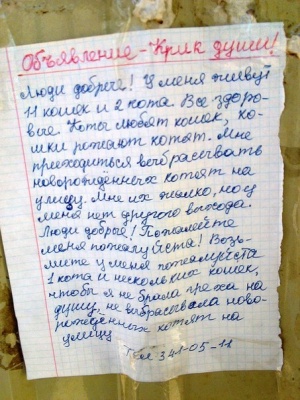 Объявление - Крик души!
Люди добрые! У меня живут
11 кошек и 2 кота. Все здоро-
вые. Коты любят кошек, ко-
шки рожают котят. Мне
преходиться выбрасывать
новорождённых котят на
улицу. Мне их жалко, но у
меня нет другого выхода.
Люди добрые! Пожалейте
меня пожалуйста! Возь-
мите у меня пожалуйста
1 кота и нескольких кошек,
чтобы я не брала греха на
душу, не выбрасывала ново-
рождённых котят на
улицу
Тел 341-05-11